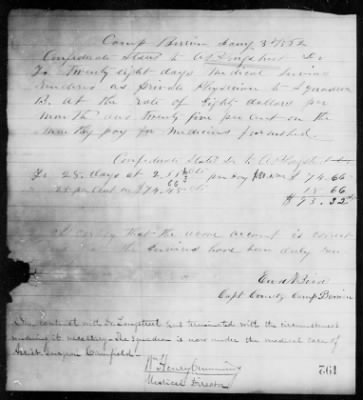 Camp Berrien Jany 3d 1862
Confederate States to A Longstreet Dr
To Twenty eight days Medical Services
rendered as private Physician to Squadron
B. At the rate of Eighty dollars per
month and twenty five per cent on the
monthly pay for medicine furnished.
Confederate States Dr to A Longstreet
To 28 days at 2. per day $74.66
25 per cent on $74. 18.66
$93.32
I certify that the above account is correct
the services have been duly
Capt Comdg Camp Berrien
The contract with Dr. Longstreet has terminated with the circumstances
making it necessary. The Squadron is now under the medical care of
Asst Surgeon Camfield.
Wm Henry Cumming
Medical Director
761